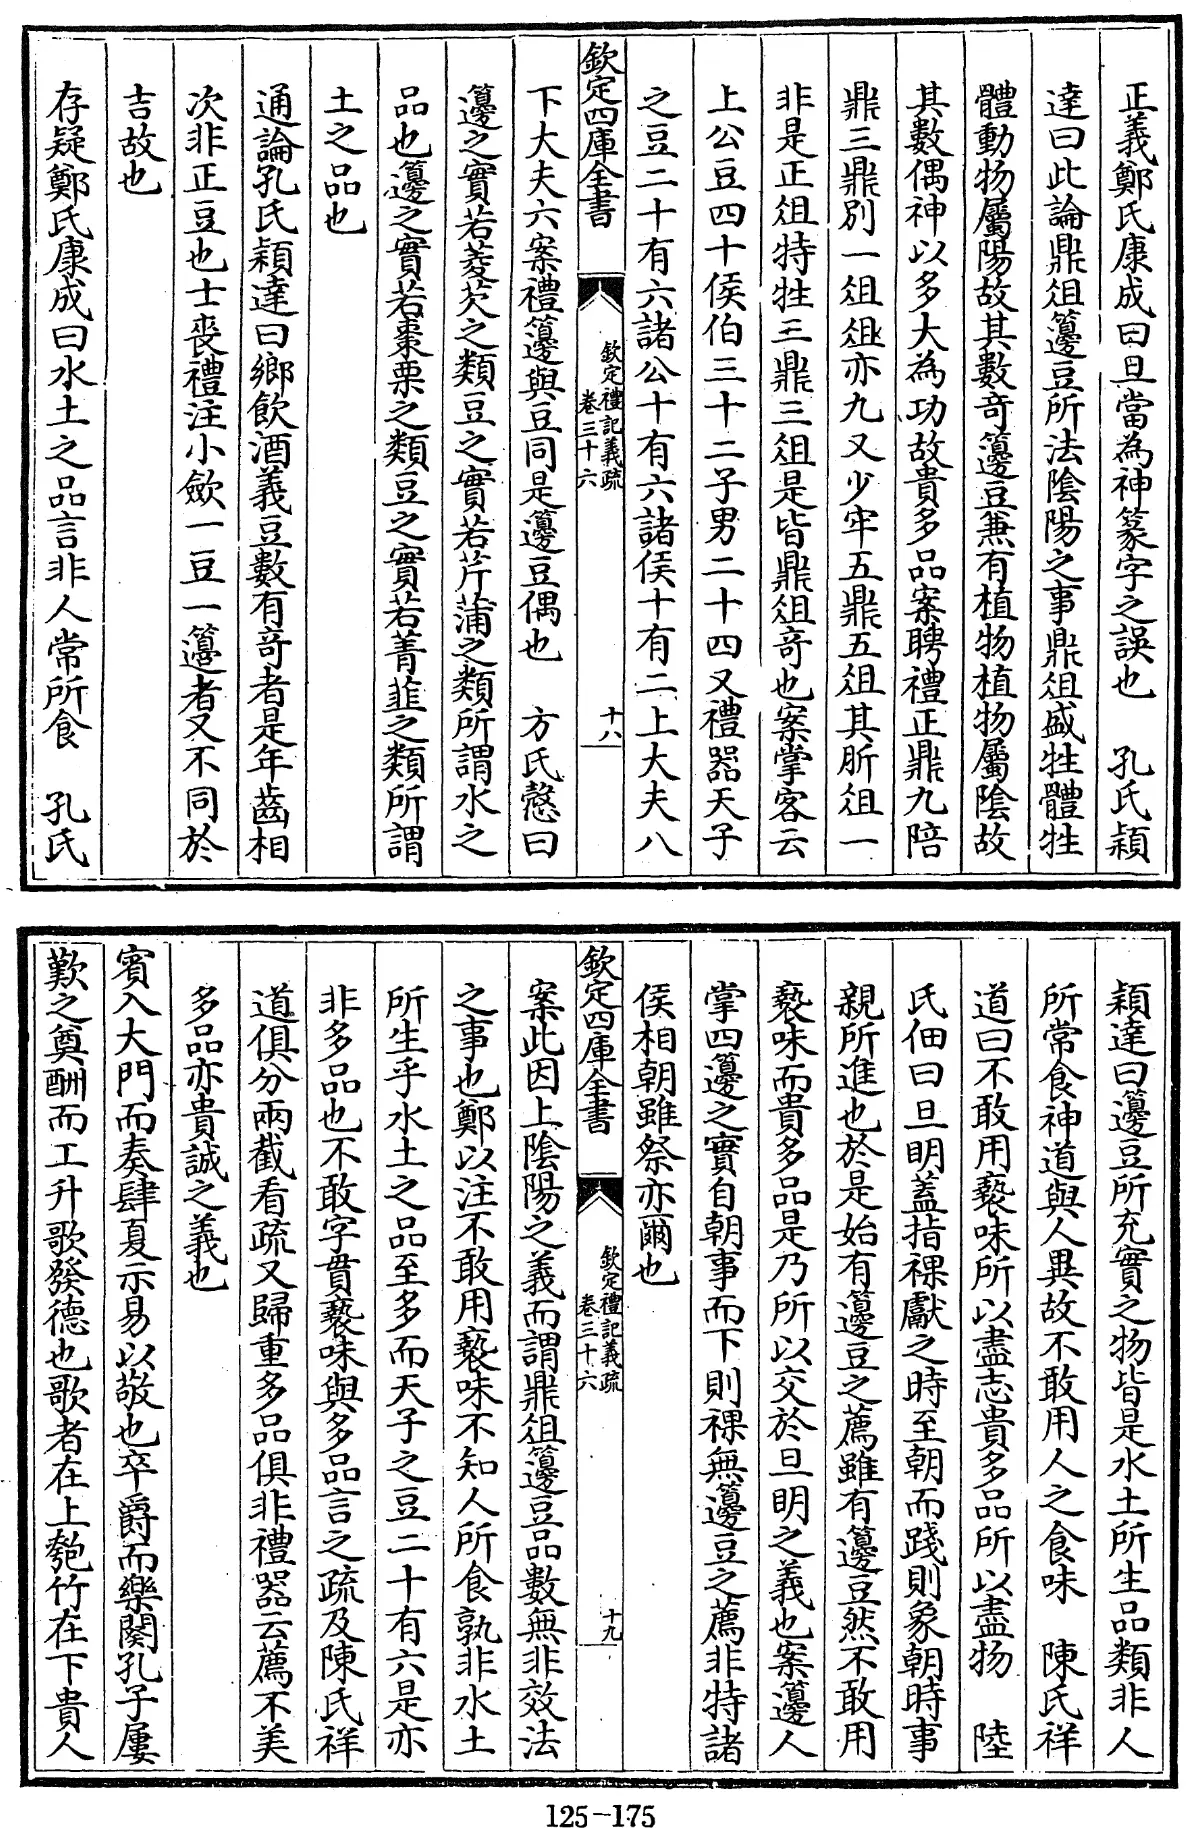 正義鄭氏康成曰旦當為神篆字之誤也　孔氏穎
達曰此論鼎俎籩豆所法陰陽之事鼎俎盛牲體牲
體動物屬陽故其數奇籩豆兼有植物植物屬陰故
其數偶神以多大為功故貴多品案聘禮正鼎九陪
鼎三鼎別一俎俎亦九又少牢五鼎五俎其肵俎一
非是正俎特牲三鼎三俎是皆鼎俎奇也案掌客云
上公豆四十侯伯三十二子男二十四又禮器天子
之豆二十有六諸公十有六諸侯十有二上大夫八
欽定四庫全書
欽定禮記義疏
卷三十六
十八
下大夫六案禮籩與豆同是籩豆偶也　方氏慤曰
籩之實若菱芡之類豆之實若芹蒲之類所謂水之
品也籩之實若棗栗之類豆之實若菁韭之類所謂
土之品也
通論孔氏穎達曰鄉飲酒義豆數有奇者是年齒相
次非正豆也士喪禮注小歛一豆一籩者又不同於
吉故也
存疑鄭氏康成曰水土之品言非人常所食　孔氏
穎達曰籩豆所充實之物皆是水土所生品類非人
所常食神道與人異故不敢用人之食味　陳氏祥
道曰不敢用褻味所以盡志貴多品所以盡物　陸
氏佃曰旦明蓋指祼獻之時至朝而踐則象朝時事
親所進也於是始有籩豆之薦雖有籩豆然不敢用
褻味而貴多品是乃所以交於旦明之義也案籩人
掌四籩之實自朝事而下則祼無籩豆之薦非特諸
侯相朝雖祭亦爾也
欽定四庫全書
欽定禮記義疏
卷三十六
十九
案此因上陰陽之義而謂鼎俎籩豆品數無非效法
之事也鄭以注不敢用褻味不知人所食孰非水土
所生乎水土之品至多而天子之豆二十有六是亦
非多品也不敢字貫褻味與多品言之疏及陳氏祥
道俱分兩截看疏又歸重多品俱非禮器云薦不美
多品亦貴誠之義也
賓入大門而奏肆夏示易以敬也卒爵而樂闋孔子屢
歎之奠酬而工升歌發德也歌者在上匏竹在下貴人
125-175